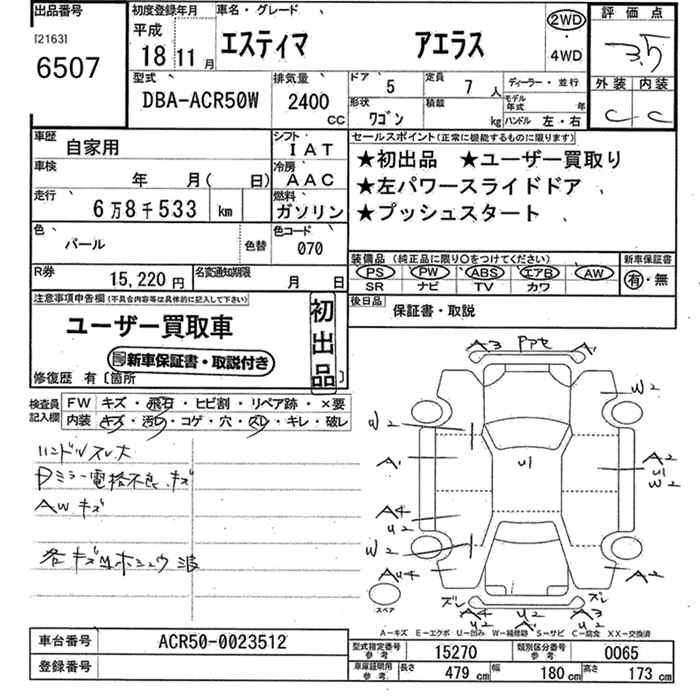 出品番号 初度登録年月 車名・グレード 評価点
[2163] 平成 2WD 3.5
6507 18 11月 エスティマ アエラス ・ 4WD
型式 排気量 ドア 5 定員 7人 ディーラー・並行 外装 内装
DBA-ACR50W 2400 cc 形状 ワゴン 積載 kg モデル年式 年 ハンドル 左・右 C C
車歴 自家用 シフト IAT セールスポイント(正常に機能するものに限ります)
車検 年 月( 日) 冷房 AAC ★初出品 ★ユーザー買取り
走行 6万8千533 km 燃料 ガソリン ★左パワースライドドア
★プッシュスタート
色 パール 色替 色コード 070
装備品(純正品に限り○をつけてください) 新車保証書
R券 15,220円 名変通知期限 月 日 PS PW ABS エアB AW 有・無
SR ナビ TV カワ
注意事項申告欄(不具合内容等は具体的に記入して下さい) 後日品 保証書・取説
ユーザー買取車 初出品
新車保証書・取説付き
修復歴 有〔箇所 〕
検査員記入欄 FW キズ・飛石・ヒビ割・リペア跡・×要
内装 キズ・汚レ・コゲ・穴・スレ・キレ・破レ
ハンドルスレ大
Pミラー電格不良、キズ
AWキズ
各キズ
A3 A1
W2
U2 U1 A2
A1 U1
W2
A4
U2
W2
A2
ズレ ズレ
A4 U2 A3
U2 A1 U2
スペア
A-キズ E-エクボ U-凹み W-補修跡 S-サビ C-腐食 XX-交換済
車台番号 ACR50-0023512 型式指定番号 参考 15270 類別区分番号 参考 0065
登録番号 車庫証明用 参考 長さ 479 cm 幅 180 cm 高さ 173 cm